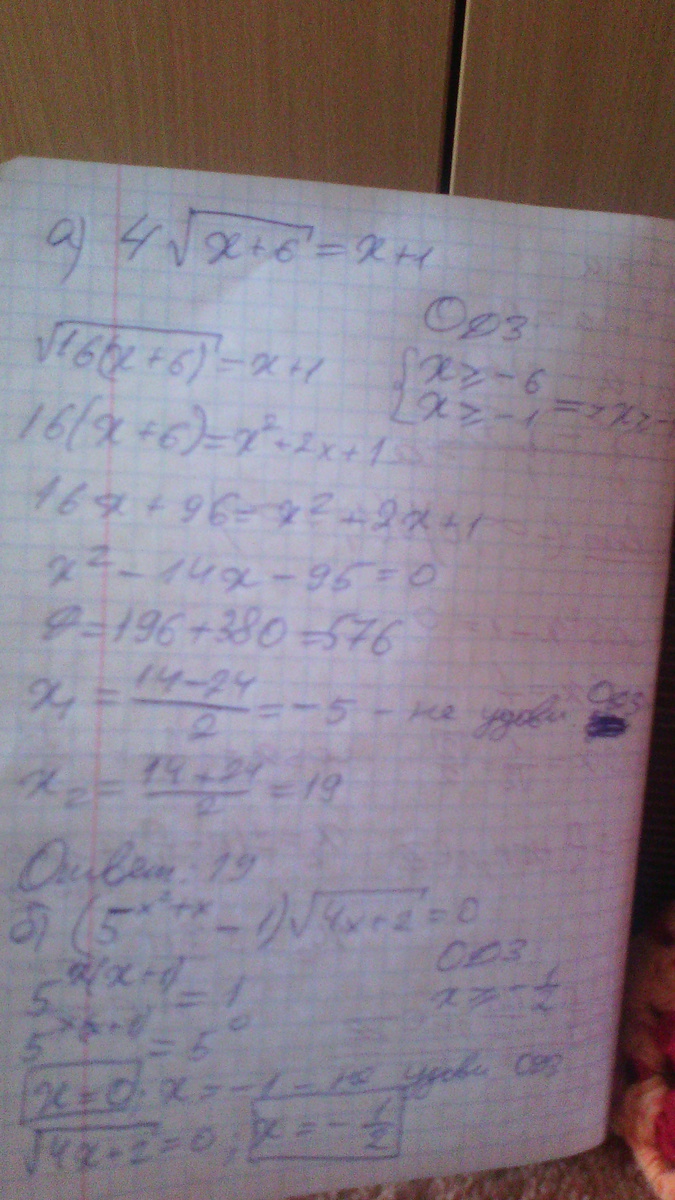 а) 4√(x+6) = x+1
ОДЗ
√(16(x+6)) = x+1
{ x ≥ -6
x ≥ -1 => x ≥ -
16(x+6) = x² + 2x + 1
16x + 96 = x² + 2x + 1
x² - 14x - 95 = 0
D = 196 + 380 = 576
x₁ = (14-24)/2 = -5 - не удовл ОДЗ
x₂ = (14+24)/2 = 19
Ответ: 19
б) (5^(x²+x) - 1)√(4x+2) = 0
ОДЗ
5^(x(x+1)) = 1
x ≥ -1/2
5^(x(x+1)) = 5^0
x = 0; x = -1 - не удовл ОДЗ
√(4x+2) = 0; x = -1/2